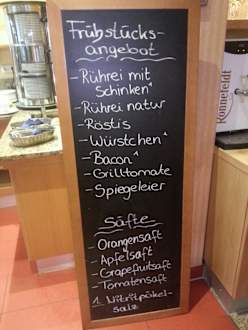 Frühstücks-
angebot
-Rührei mit
Schinken¹
-Rührei natur
-Röstis
-Würstchen¹
-Bacon¹
-Grilltomate
-Spiegeleier
Säfte
-Orangensaft
-Apfelsaft
-Grapefruitsaft
-Tomatensaft
1. Nitritpökel-
salz
Ronnefeldt